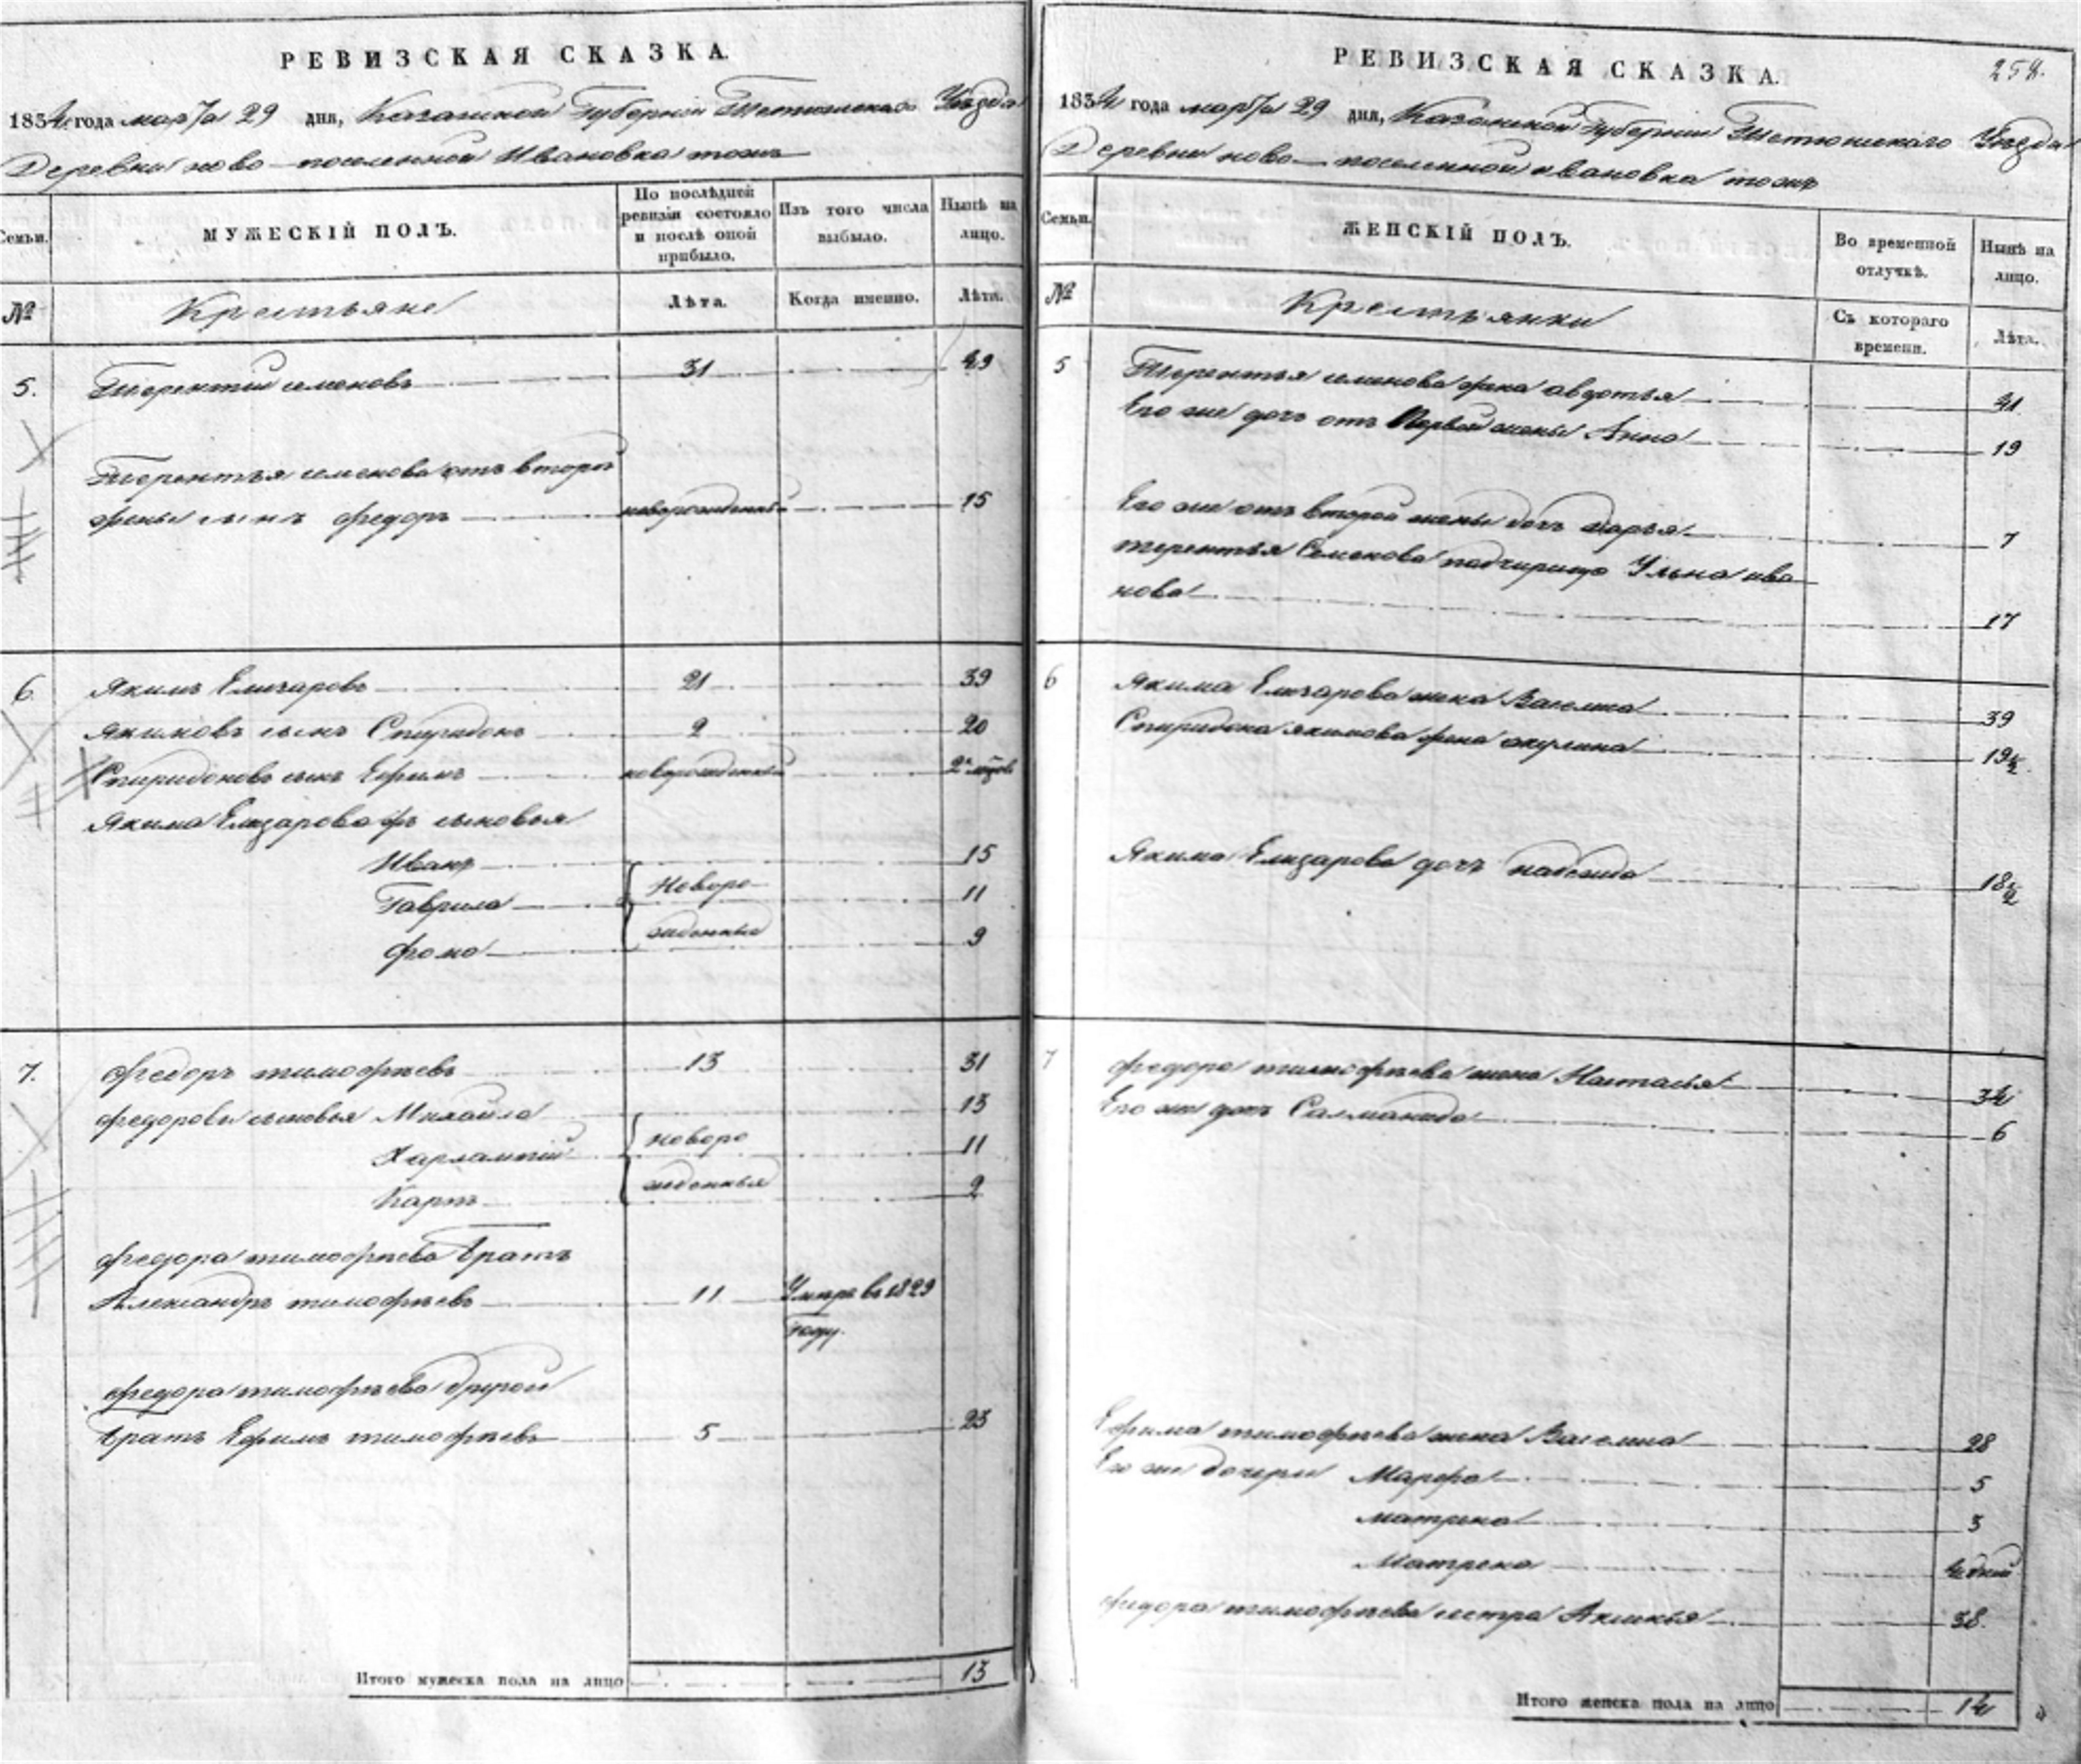 РЕВИЗСКАЯ СКАЗКА.
1834 года марта 29 дня, Казанской Губернии Тетюшскаго Уезда
Деревни ново-поселенной Ивановка тожъ
Семьи.
МУЖЕСКІЙ ПОЛЪ.
По послѣдней ревизіи состояло и послѣ оной прибыло.
Изъ того числа выбыло.
Нынѣ на лицо.
№
Крестьяне
Лѣта.
Когда именно.
Лѣта.
5. Терентий семеновъ 31 49
Терентья семенова отъ второй
жены сынъ федоръ новорожденный 15
6. Якимъ Елизаровъ 21 39
Якимовъ сынъ Спиридонъ 2 20
Спиридоновъ сынъ Ефимъ новорожденный
Якима Елизарова сыновья
Иванъ 15
Гаврила новоро 11
фома жденныя 9
7. федоръ тимофѣевъ 13 31
федоровы сыновья Михайла 13
Харлампий новоро 11
Карпъ жденныя 2
федора тимофѣева братъ
Александръ тимофѣевъ 11 Умеръ въ 1829
году.
федора тимофѣева другой
братъ Ефимъ тимофѣевъ 5 23
Итого мужеска пола на лицо 13
РЕВИЗСКАЯ СКАЗКА.
258.
1834 года марта 29 дня, Казанской Губернии Тетюшскаго Уезда
Деревни ново-поселенной ивановка тожъ
Семьи.
ЖЕНСКІЙ ПОЛЪ.
Во временной отлучкѣ.
Нынѣ на лицо.
№
Крестьянки
Съ котораго времени.
Лѣта.
5 Терентья семенова жена авдотья 41
Его же дочь отъ Первой жены Анна 19
Его же отъ второй жены дочь дарья 7
терентья Семенова падчирица Ульна ива
нова 17
6 Якима Елизарова жена Василиса 39
Спиридона якимова жена акулина 19½
Якима Елизарова дочь надежда 18½
7 федора тимофѣева жена Настасья 34
Его же дочь Саламанида 6
Ефима тимофѣева жена Василиса 28
Его же дочери Марфа 5
матрена 3
Матрена 4 дней
федора тимофѣева сестра Аксинья 38.
Итого женска пола на лицо 14